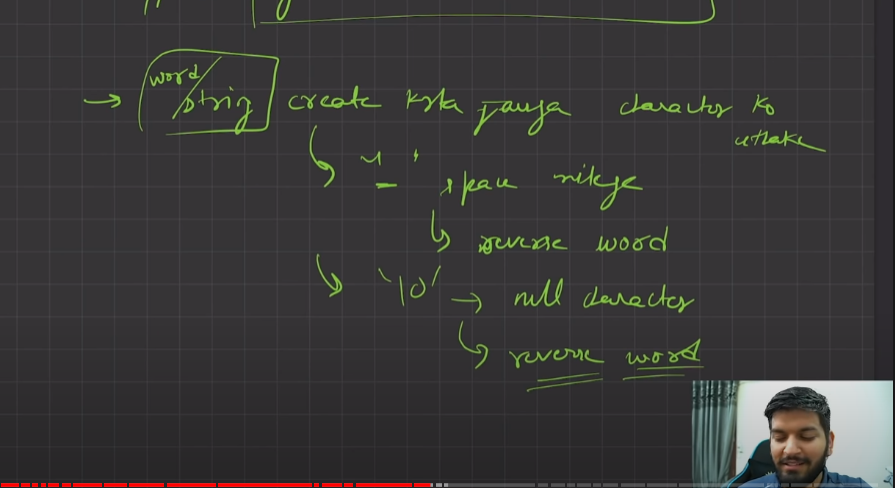 → word/string create krta jauga character ko
uthake
↳ '_' space milge
↳ reverse word
↳ '\0' → null character
↳ reverse word